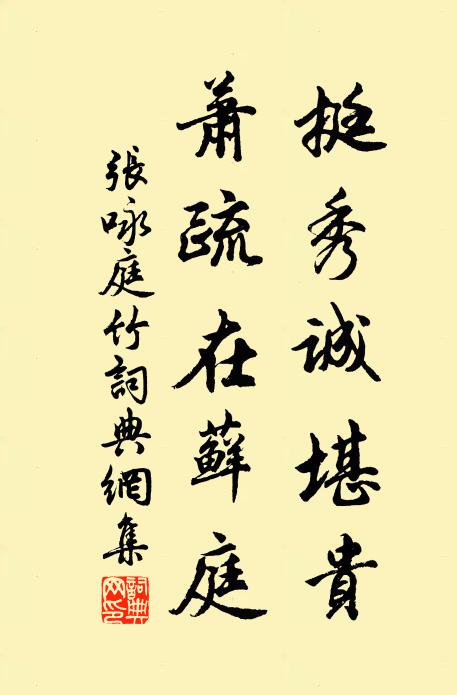 挺秀誠堪貴
蕭疏在蘚庭
張咏庭竹詞典網集